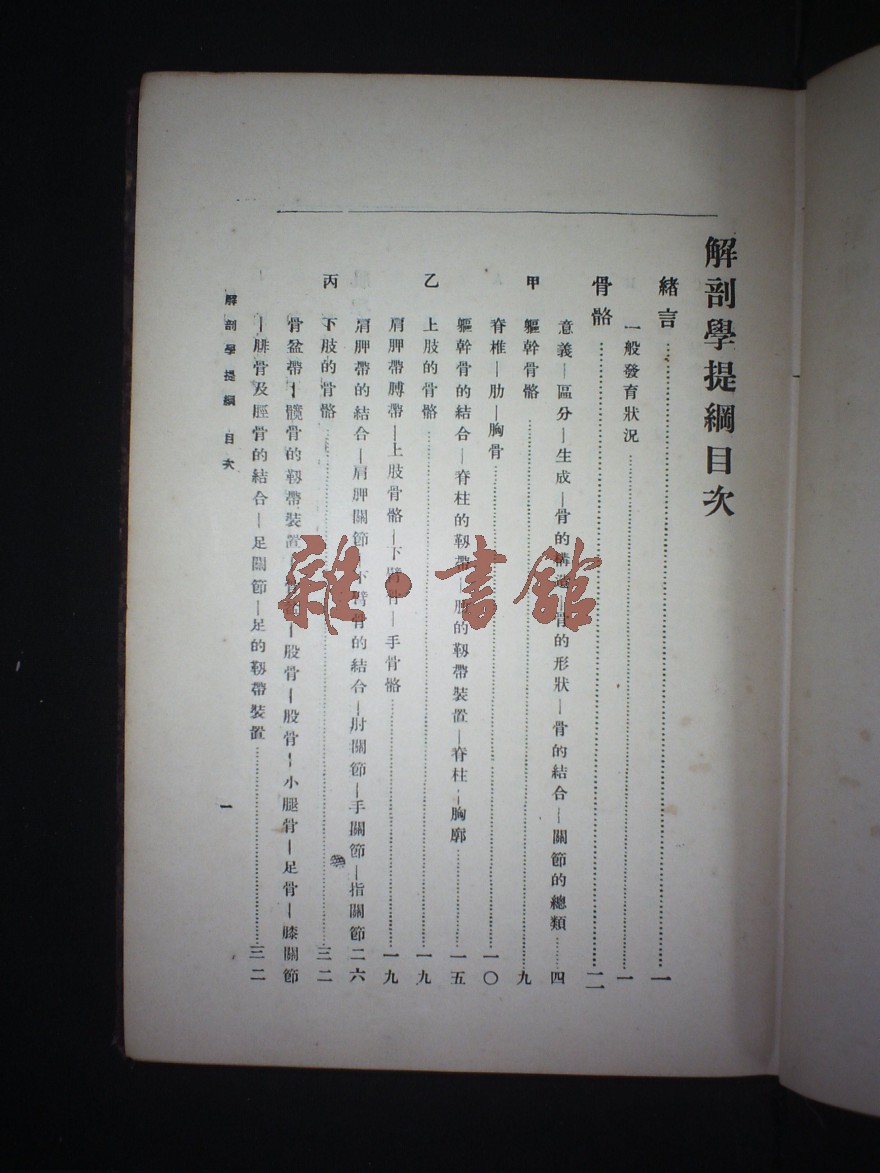 解剖學提綱目次
緒言……一
一般發育狀況……一
骨骼……二
意義—區分—生成—骨的構造—骨的形狀—骨的結合—關節的總類……四
甲 軀幹骨骼……九
脊椎—肋—胸骨……一〇
軀幹骨的結合—脊柱的韌帶—肋的韌帶裝置—脊柱—胸廓……一五
乙 上肢的骨骼……一九
肩胛帶膊帶—上肢骨骼—下臂骨—手骨骼……一九
肩胛帶的結合—肩胛關節—下臂骨的結合—肘關節—手關節—指關節二六
丙 下肢的骨骼……三二
骨盆帶—髖骨的韌帶裝置—骨盆—股骨—股骨—小腿骨—足骨—膝關節
—腓骨及脛骨的結合—足關節—足的韌帶裝置……三二
解剖學提綱 目次
一
雜·書館